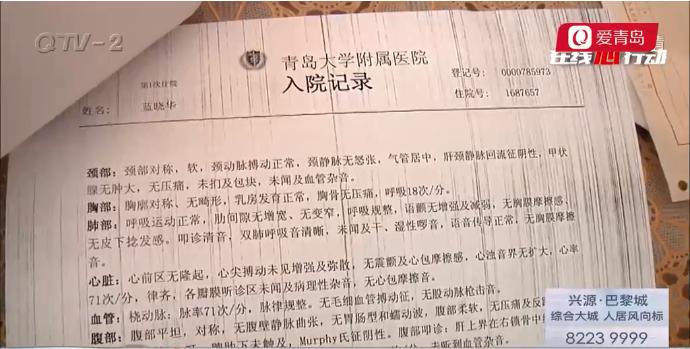 QTV-2
爱青岛
在线行动
青岛大学附属医院
入院记录
第1次住院
登记号: 0000785973
姓名: 蓝晓华
住院号: 1687657
颈部: 颈部对称, 软, 颈动脉搏动正常, 颈静脉无怒张, 气管居中, 肝颈静脉回流征阴性, 甲状
腺无肿大, 无压痛, 未扪及包块, 未闻及血管杂音。
胸部: 胸廓对称、无畸形, 乳房发育正常, 胸骨无压痛, 呼吸18次/分。
肺部: 呼吸运动正常, 肋间隙无增宽、无变窄, 呼吸规整, 语颤无增强及减弱, 无胸膜摩擦感,
无皮下捻发感。叩诊清音, 双肺呼吸音清晰, 未闻及干、湿性啰音, 语音传导正常, 无胸膜摩擦
音。
心脏: 心前区无隆起, 心尖搏动未见增强及弥散, 无震颤及心包摩擦感, 心浊音界无扩大, 心率
71次/分, 律齐, 各瓣膜听诊区未闻及病理性杂音, 无心包摩擦音。
血管: 桡动脉: 脉率71次/分, 脉律规整。无毛细血管搏动征, 无股动脉枪击音。
腹部: 腹部平坦, 对称, 无腹壁静脉曲张, 无胃肠型和蠕动波, 腹部柔软, 无压痛及反
脾肋下未触及, Murphy氏征阴性。腹部叩诊: 肝上界在右锁骨中
未听到血管杂音
兴源·巴黎城
综合大城 人居风向标
8223 9999